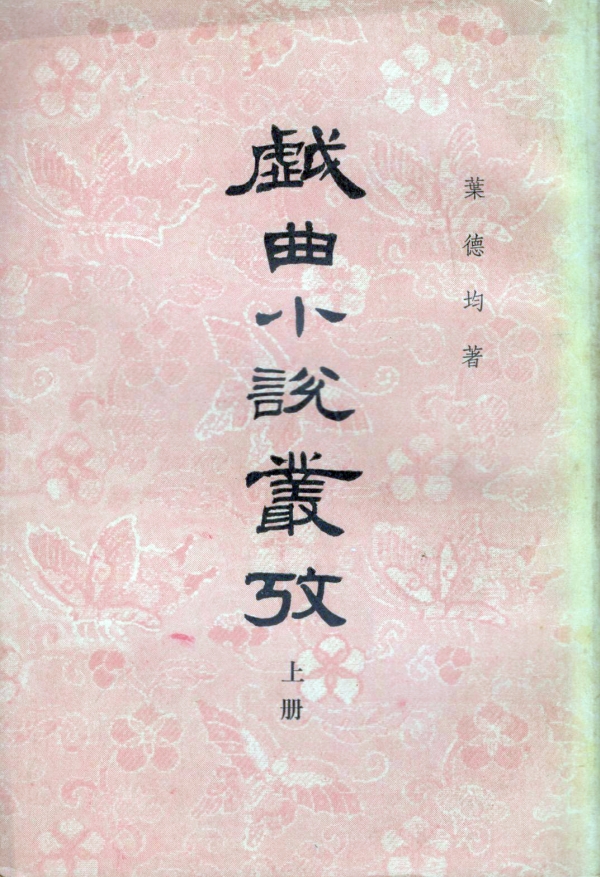 葉德均著
戯曲小說叢攷
上册